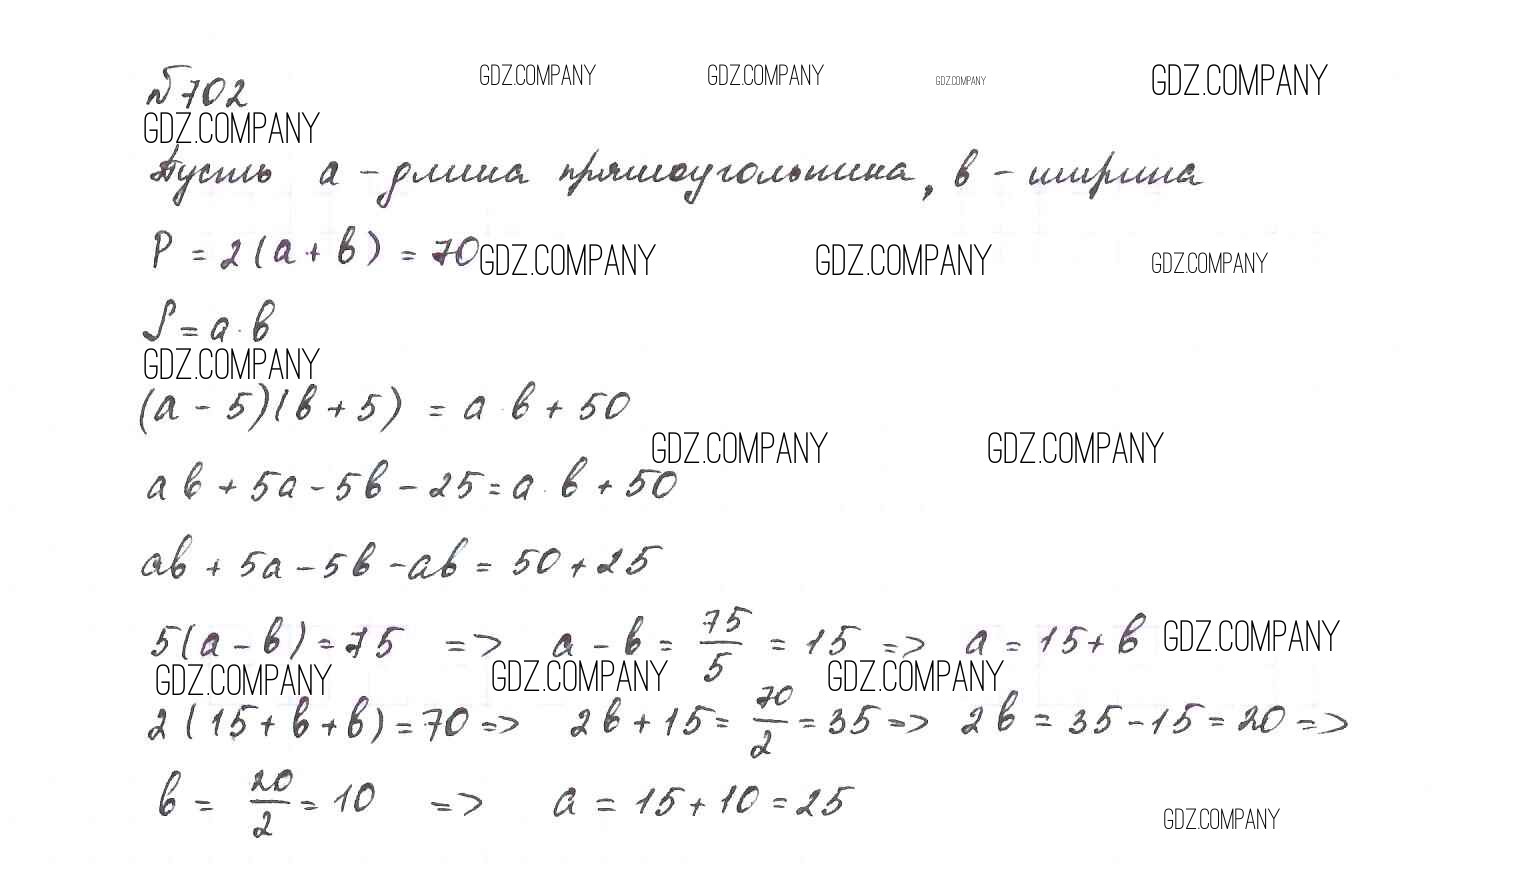 №702 GDZ.COMPANY GDZ.COMPANY GDZ.COMPANY GDZ.COMPANY
GDZ.COMPANY
Пусть a - длина прямоугольника, b - ширина
P = 2(a + b) = 70 GDZ.COMPANY GDZ.COMPANY GDZ.COMPANY
S = a · b
GDZ.COMPANY
(a - 5)(b + 5) = a b + 50
GDZ.COMPANY GDZ.COMPANY
ab + 5a - 5b - 25 = a · b + 50
ab + 5a - 5b - ab = 50 + 25
5(a - b) = 75 => a - b = 75/5 = 15 => a = 15 + b GDZ.COMPANY
GDZ.COMPANY GDZ.COMPANY GDZ.COMPANY
2(15 + b + b) = 70 => 2b + 15 = 70/2 = 35 => 2b = 35 - 15 = 20 =>
b = 20/2 = 10 => a = 15 + 10 = 25
GDZ.COMPANY